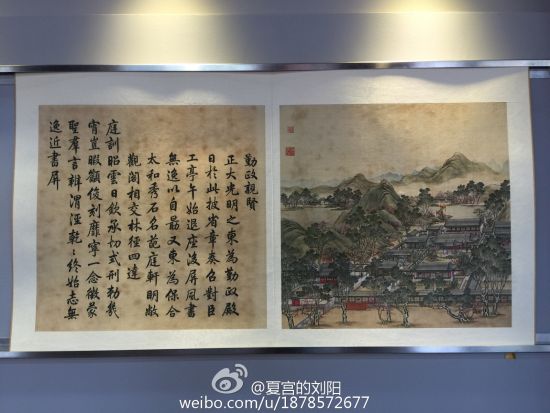 勤政親賢
正大光明之東為勤政殿
日於此披省章奏召對臣
工亭午始退座後屏風書
無逸以自勗又東為保合
太和秀石名葩庭軒明敞
觀閣相交林徑四達
庭訓昭雲日欽承切式刑勅幾
宵豈暇顧刻靡寧一念徵蒙
聖羣言辯渭涇乾〻終始志無
逸近書屏
@夏宫的刘阳
weibo.com/u/1878572677